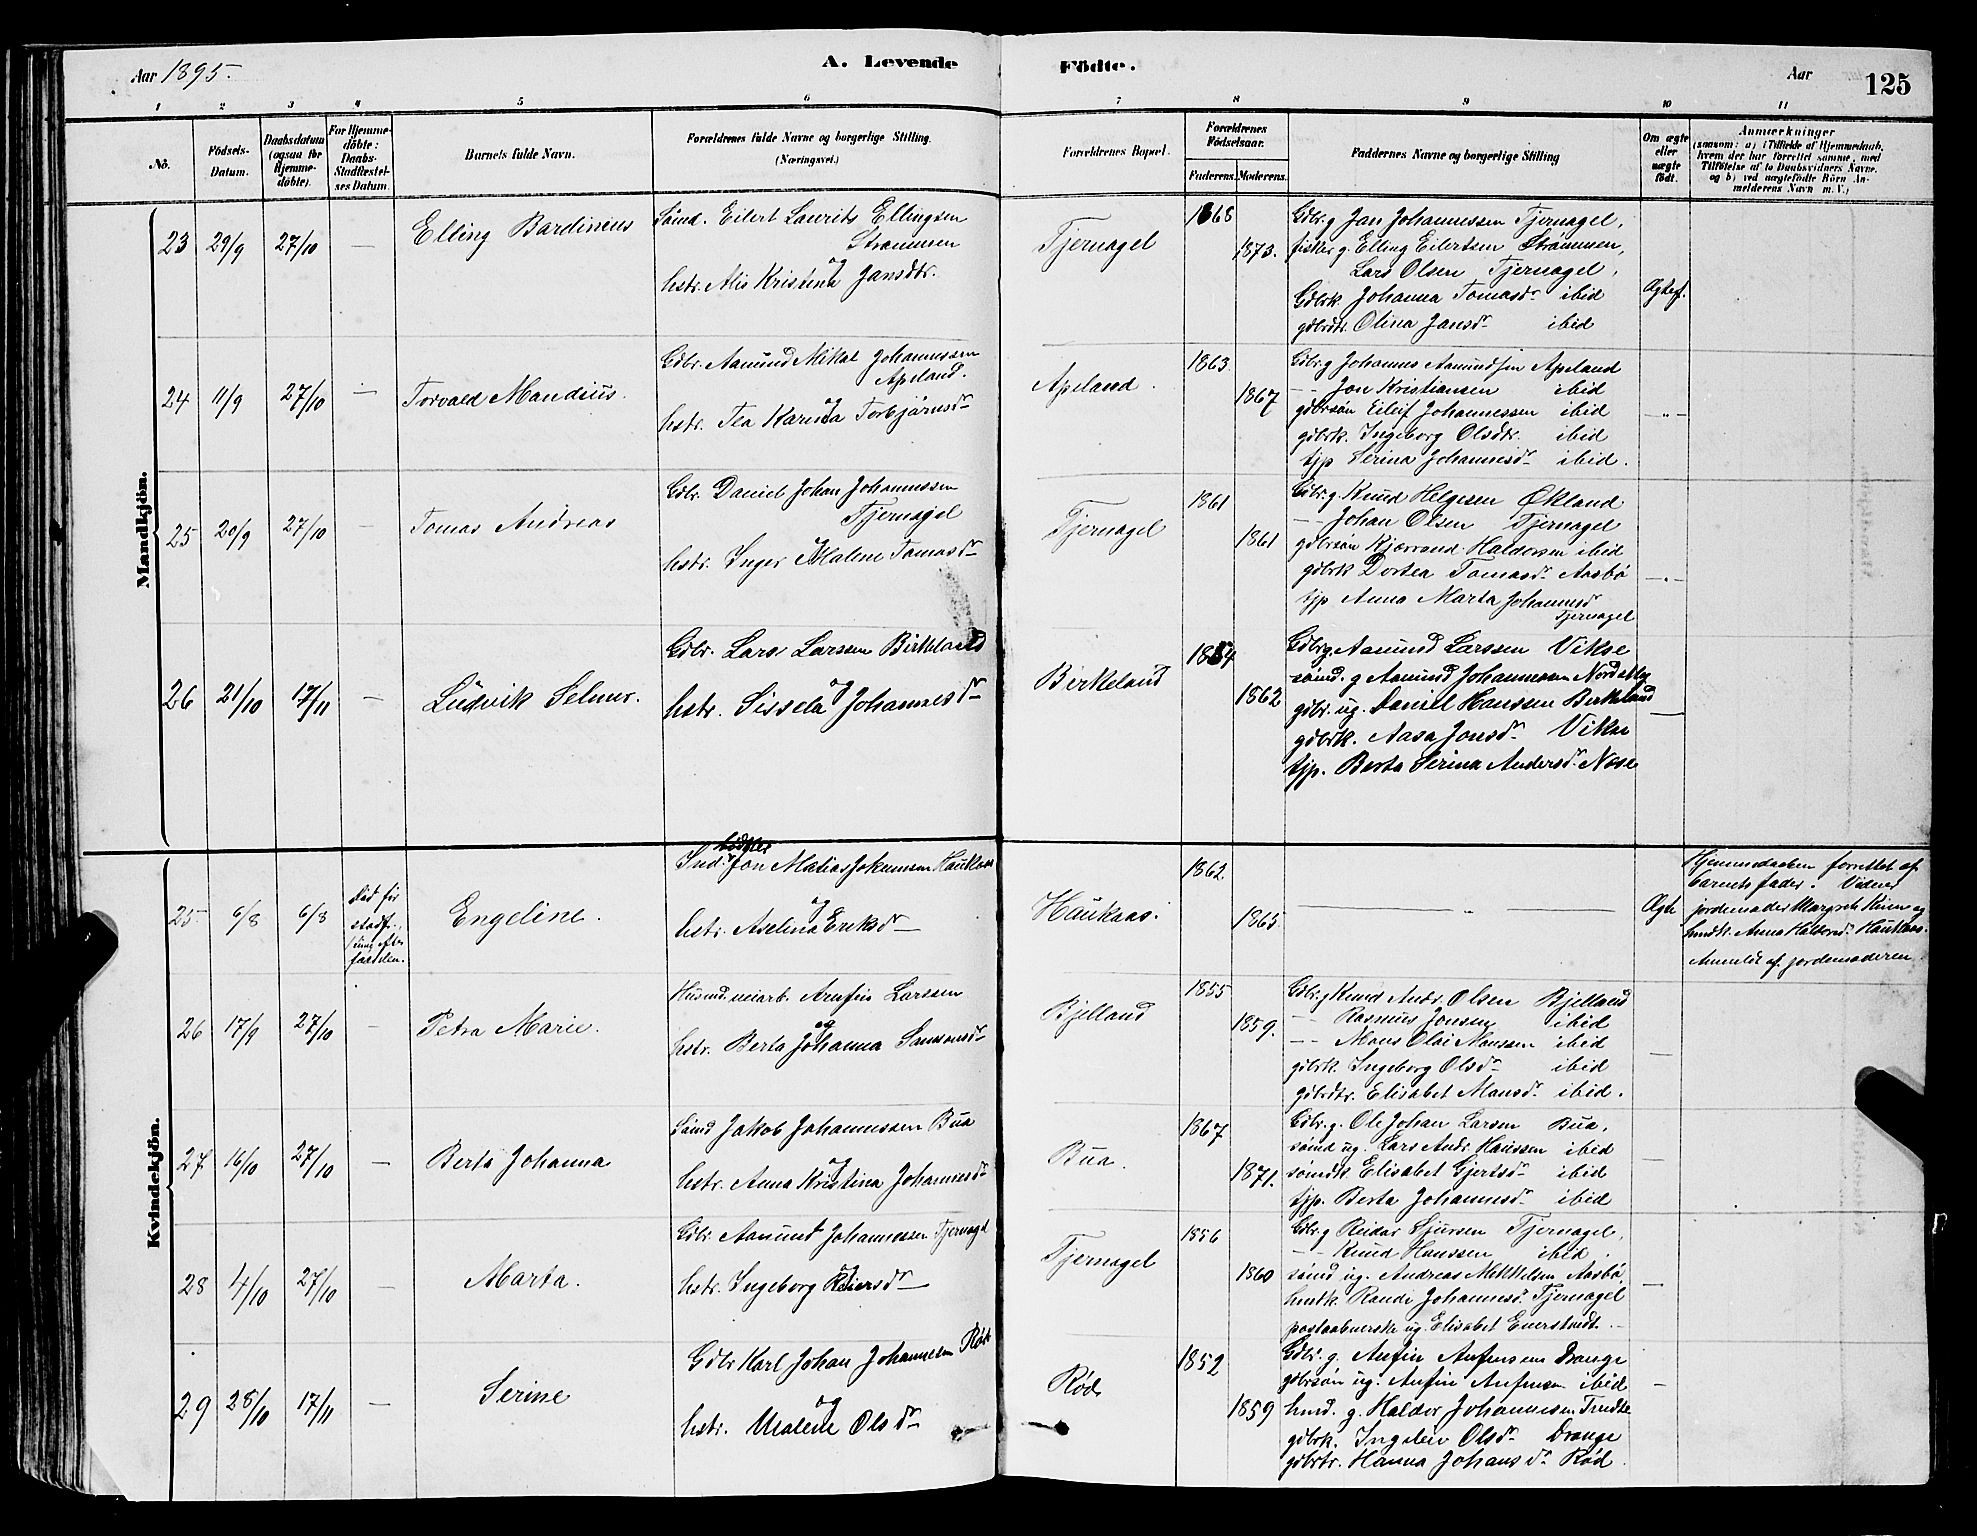 Aar 1895.
A. Levende Födte.
Aar 125
1 2 3 4 5 6 7 8 9 10 11
No.
Födsels-Datum.
Daabsdatum (ogsaa for Hjemme-döbte).
For Hjemme-döbte: Daabs-Stadfæstel-ses Datum.
Barnets fulde Navn.
Forældrenes fulde Navne og borgerlige Stilling. (Næringsvei.)
Forældrenes Bopæl.
Forældrenes Födselsaar.
Faderens. Moderens.
Faddernes Navne og borgerlige Stilling
Om ægte eller uægte födt.
Anmærkninger
(saasom: a) i Tilfælde af Hjemmedaab,
hvem der har forrettet samme, med
Tilföielse af to Daabsvidners Navne.
og b) ved uægtefödte Börn An-
melderens Navn m. V.)
Mandkjön.
23 29/9 27/10 —
Elling Bardineus
Sömd. Eilert Laurits Ellingsen
Strømmen
og
hstr. Alis Kristina Jansdtr.
Tjernagel
1868
1873.
Gdbr. g Jan Johannessen Tjernagel,
fisker g. Elling Eilertsen Strømmen,
Lars Olsen Tjernagel,
Gdbrk. Johanna Tomasdr ibid
gdbrdtr. Olina Jansdr ibid
Ægtef.
24 11/9 27/10 —
Torvald Mandius.
Gdbr. Aamund Mikal Johannessen
Apeland.
og
hstr. Tea Karina Torbjørnsdr
Apeland.
1863
1867
Gdbr. g Johannes Aamundsen Apeland
— Jon Kristiansen ibid
gdbrsön Eileif Johannessen ibid
gdbrk. Ingeborg Olsdtr. ibid
tjp Serina Johannesdr ibid.
— " —
25 20/9 27/10 —
Tomas Andreas
Gdbr. Daniel Johan Johannessen
Tjernagel
og
hstr. Inger Malene Tomasdr
Tjernagel
1861
1861
Gdbr. g. Knud Helgesen Økland
— Johan Olsen Tjernagel
gdbrsön Kjærrand Haldorsen ibid
gdbrk Dortea Tomasdr Aasbö
tjp Anna Marta Johannesdr
Tjernagel
— " —
26 21/10 17/11 —
Ludvik Selmer.
Gdbr. Lars Larssen Birkeland
og
hstr. Sissela Johannesdr
Birkeland
1864
1862
Gdbr. g Aamund Larssen Vikse
sömd. g Aamund Johannessen
gdbr. ug. Daniel Hanssen Birkeland
gdbrk. Aasa Jonsdr Vikse
tjp. Berta Serina Andersdr Næse
—
Kvindekjön.
25 6/8 6/8
död för
stadf.
Engeline.
Ind. Jon Matias Jokumsen Haukaas
og
hstr. Aselina Eriksdr
Haukaas.
1862
1865
— " —
Ægte
Hjemmedaaben forrettet af
barnets fader. Vidner
jordemoder Margrete og
husk. Anna Haldorsdr Haukaas.
Anmeldt af jordemoderen.
26 17/9 27/10 —
Petra Marie.
Husmd. veiarb. Arnfin Larssen
og
hstr. Berta Johanna Samsonsdr
Bjelland
1855
1859.
Gdbr. g Knud Andr. Olsen Bjelland
— Rasmus Jonsen ibid
— Mons Olai Monssen ibid
gdbrk. Ingeborg Olsdr ibid
gdbrdtr. Elisabet Monsdr ibid.
—
27 16/10 27/10 —
Berta Johanna
Sömd Jakob Johannessen Bua
og
hstr. Anna Kristina Johannesdr
Bua.
1867
1871.
Gdbr. g. Ole Johan Larsen Bua,
sömd ug. Lars Andr. Hanssen ibid
sömdk. Elisabet Gjertsdr ibid
tjp. Berta Johannesdr ibid
—
28 4/10 27/10 —
Marta.
Gdbr. Aamund Johannessen Tjernagel
og
hstr. Ingeborg Reiersdr
Tjernagel
1856
1860
Gdbr. g Reidar Sjursen Tjernagel,
— Knud Hanssen ibid.
sömd ug. Andreas Mikkelsen Aasbö,
hmdk. Randi Johannesdr Tjernagel
postaabnerske ug. Elisabet
—
29 28/10 17/11 —
Serine
Gdbr Karl Johan Johannesen Röd
og
hstr. Malene Olsdr
Röd
1852
1859
Gdbr. g. Anfin Anfinsen Drange
gdbrsön ug. Anfin Anfinsen ibid
hmd. g. Haldor Johannesen
gdbrk. Ingebor Olsdr Drange
gdbrtr. Hanna Johansdr Röd.
—